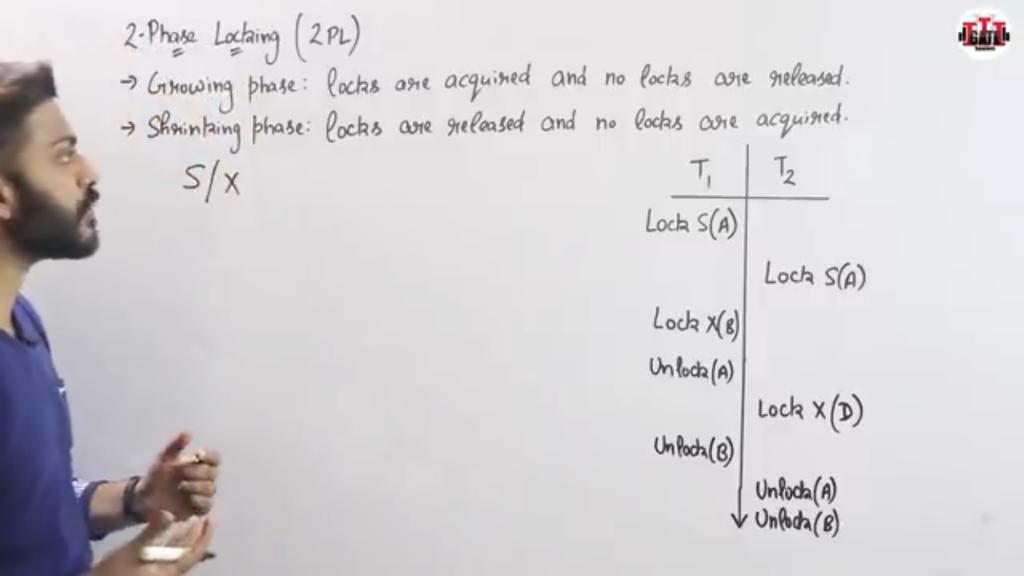 2-Phase Locking (2PL)
→ Growing phase: locks are acquired and no locks are released.
→ Shrinking phase: locks are released and no locks are acquired.
S/X
T1 T2
Lock S(A)
Lock S(A)
Lock X(B)
Unlock(A)
Lock X(D)
Unlock(B)
Unlock(A)
Unlock(B)
GATE